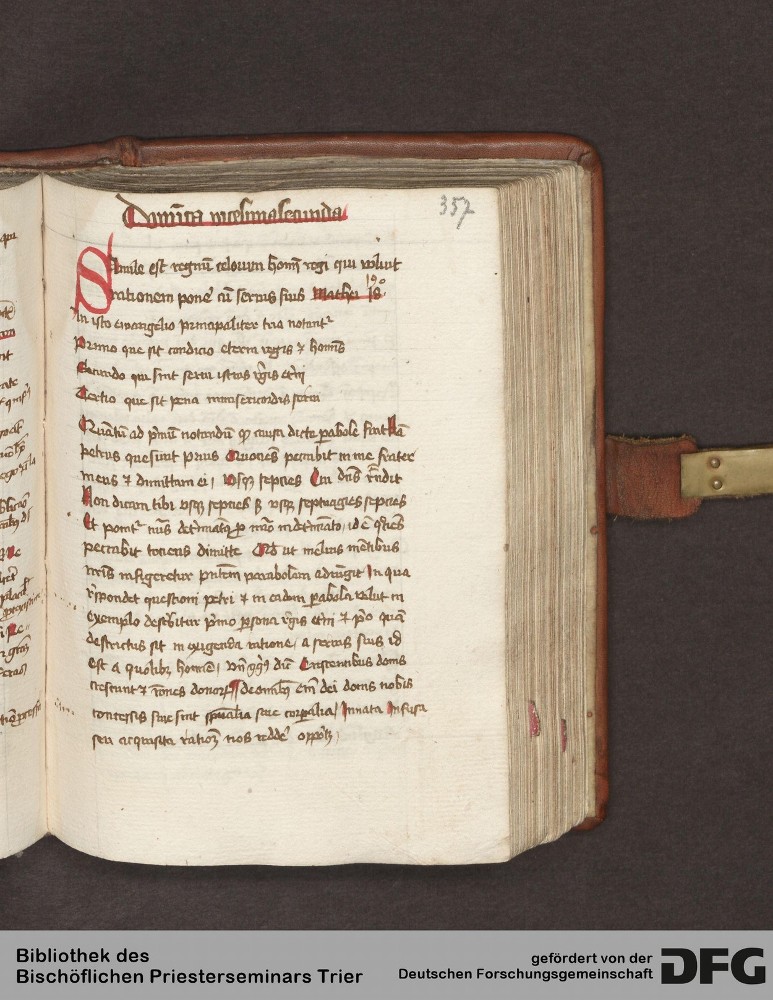 Domīca vicesimasecunda
357
Simile est regnū celorum homī regi qui voluit
rationem ponē cū servis suis Mathei 18º
In isto ewangelio principaliter tria notantʳ
Primo que sit condicio eterni regis ⁊ homīs
Secundo qui sint servi istius rēgis etīni
Tertio que sit pena inmisericordis servi
Quātū ad pͥmū notandū qͥ causa dicte pabole fuit Nā
petrus quesiuit prius Quociens peccabit in me frater
meus ⁊ dimittam ei, Vsqꝫ septies Cui dn̄s rn̄dit
Non dicam tibi vsqꝫ septies sꝫ vsqꝫ septuagies septies
Et ponitʳ nūs det̄miatꝰ p īdet̄miato, id ē qͦciēs
peccabit tociens dimitte Qd ut melius mētibus
nr̄is infigeretur pn̄tem parabolam adiūgit In qua
rn̄spondet questioni petri ⁊ in eadem pabola volut in
exemplo describitur pͥmo psona rēgis et̄ni ⁊ pͦ quā
destrictus sit in exigenda ratione, a servis suis id
est a quolibꝫ homīe, vn̄ gͦgͦ dū Crescentibus donis
crescunt ⁊ rōnes donorꝫ de omībꝫ em̄ dei donis nobis
concessis siue sint spūalia siue corpalia, Innata Infusa
seu acquisita rationē nos reddē oportꝫ,
Bibliothek des
Bischöflichen Priesterseminars Trier
gefördert von der
Deutschen Forschungsgemeinschaft
DFG